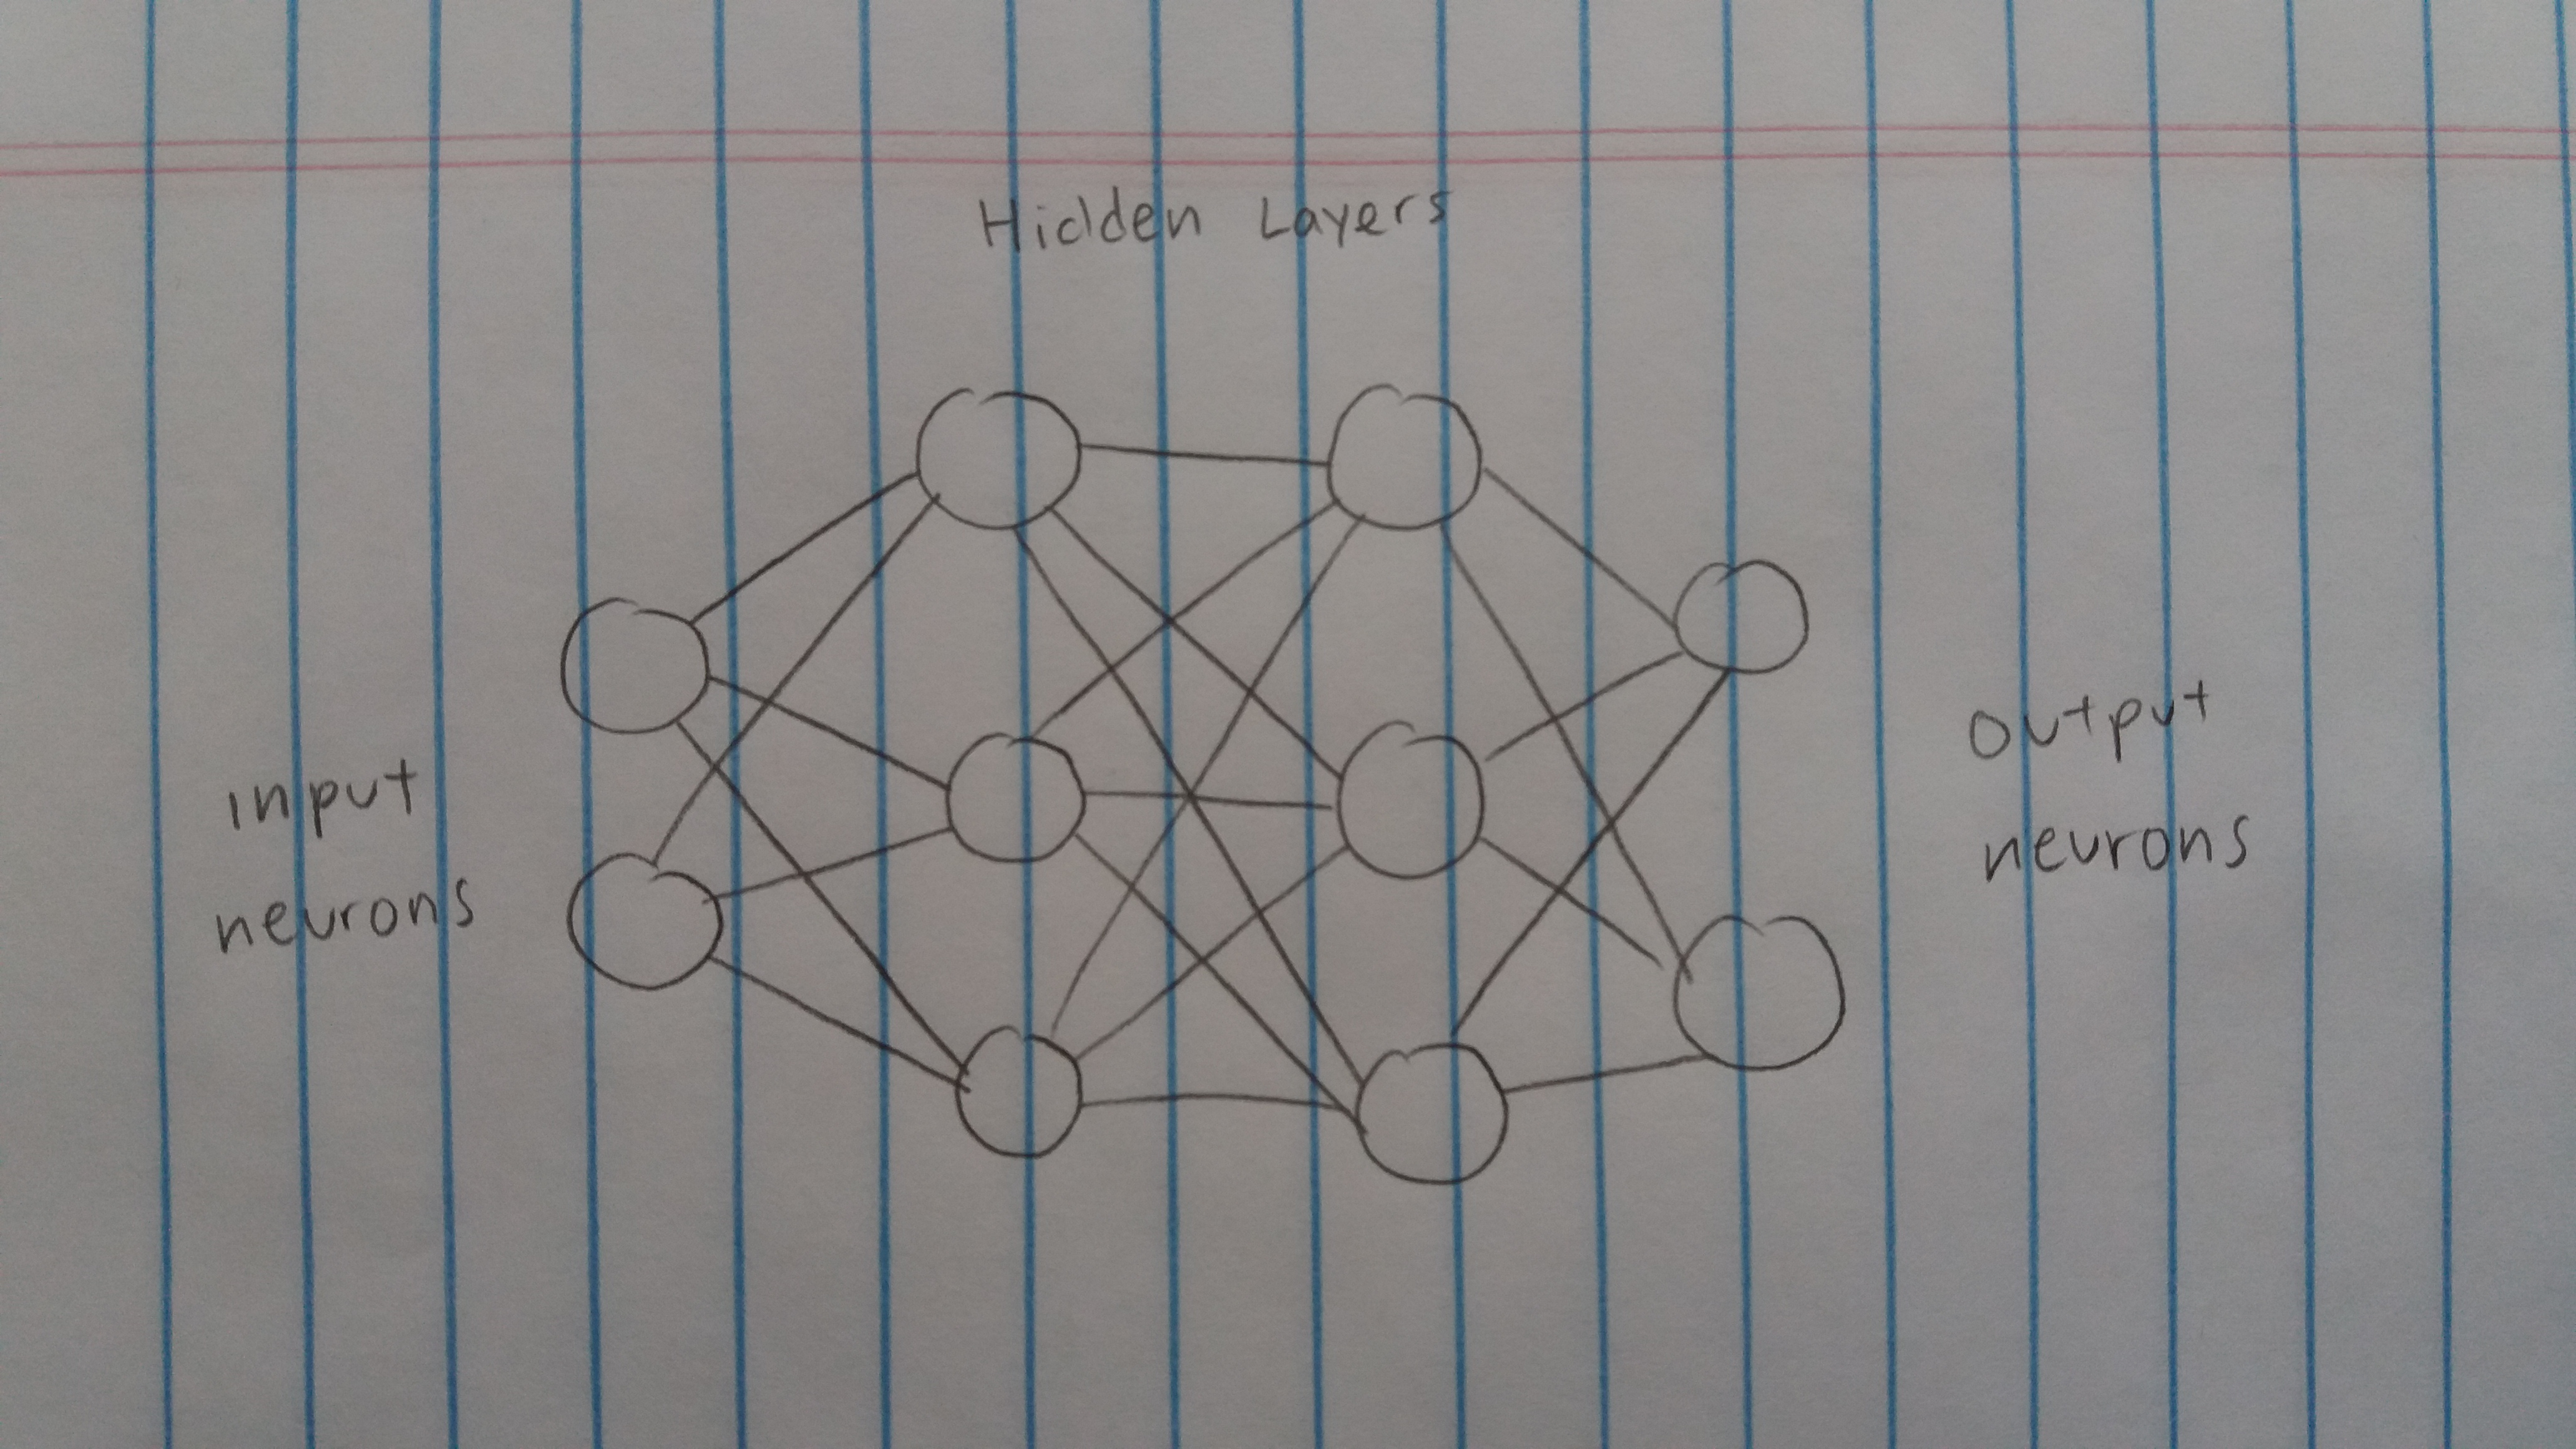 Hidden Layers
input
neurons
output
neurons